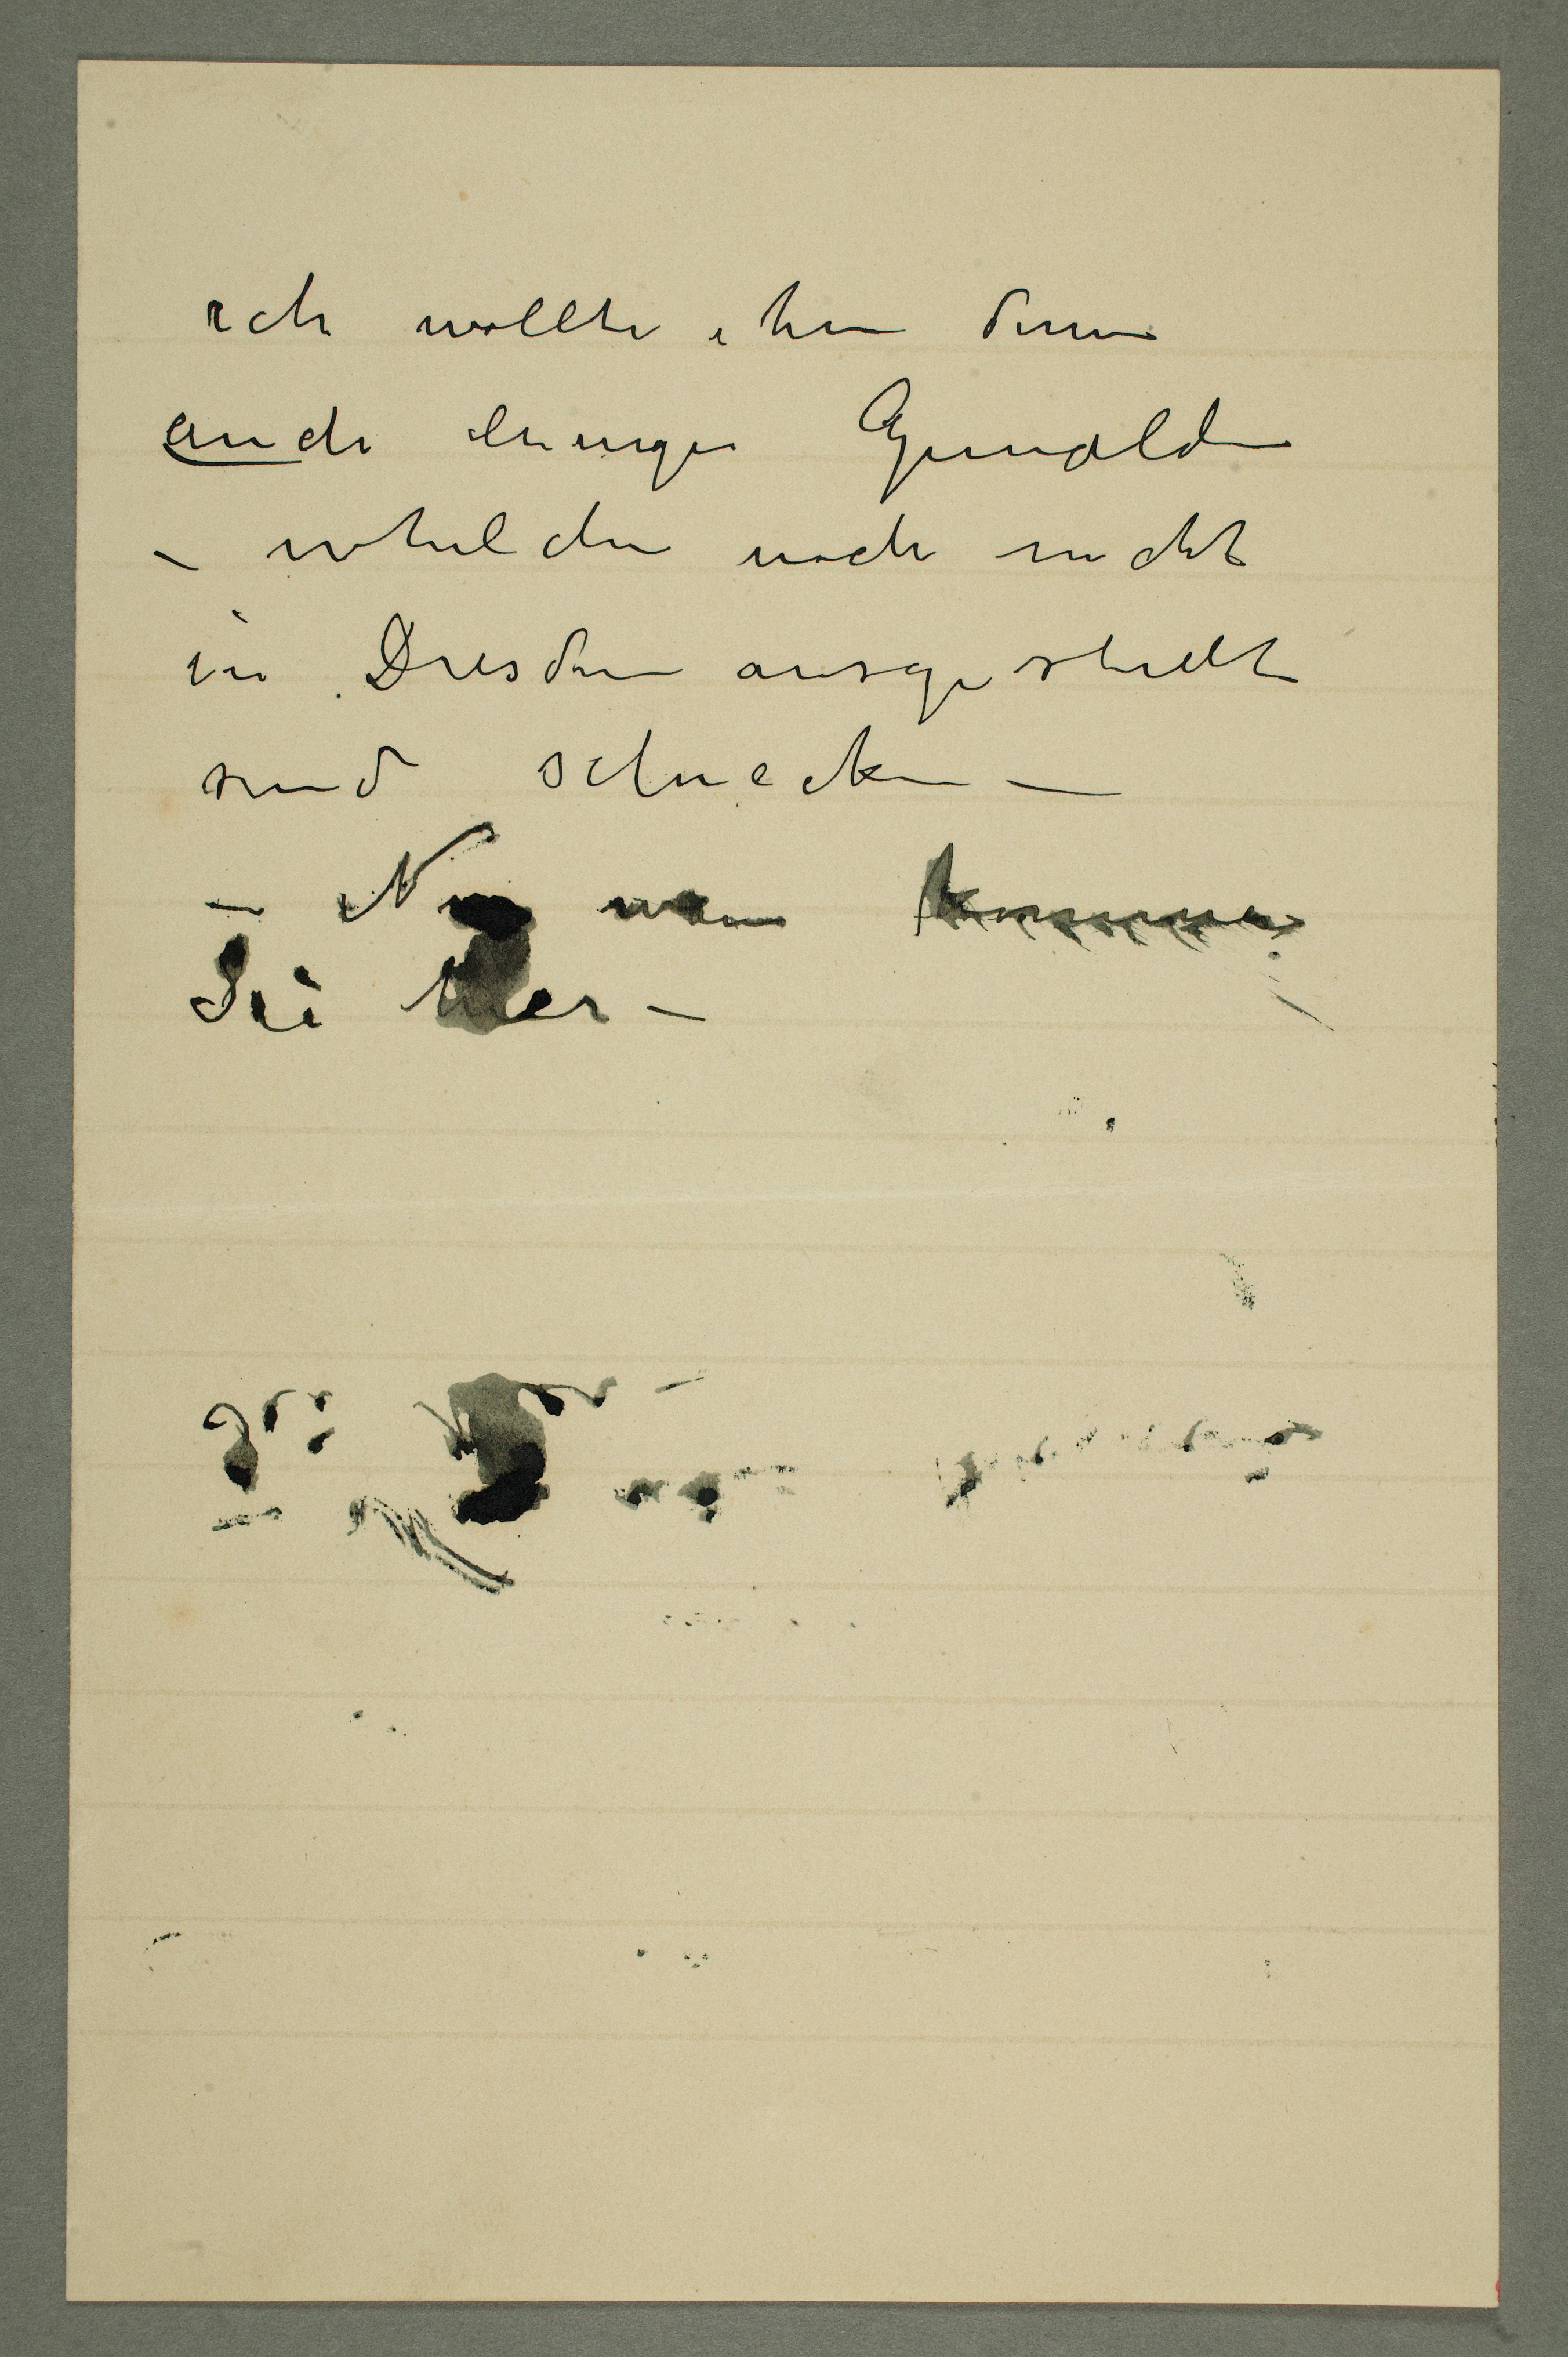 ich wollte ihnen dann
auch einige Gemälde
– welche noch nicht
in Dresden ausgestellt
sind schicken –
– Nun wan kommen
Sie hier –